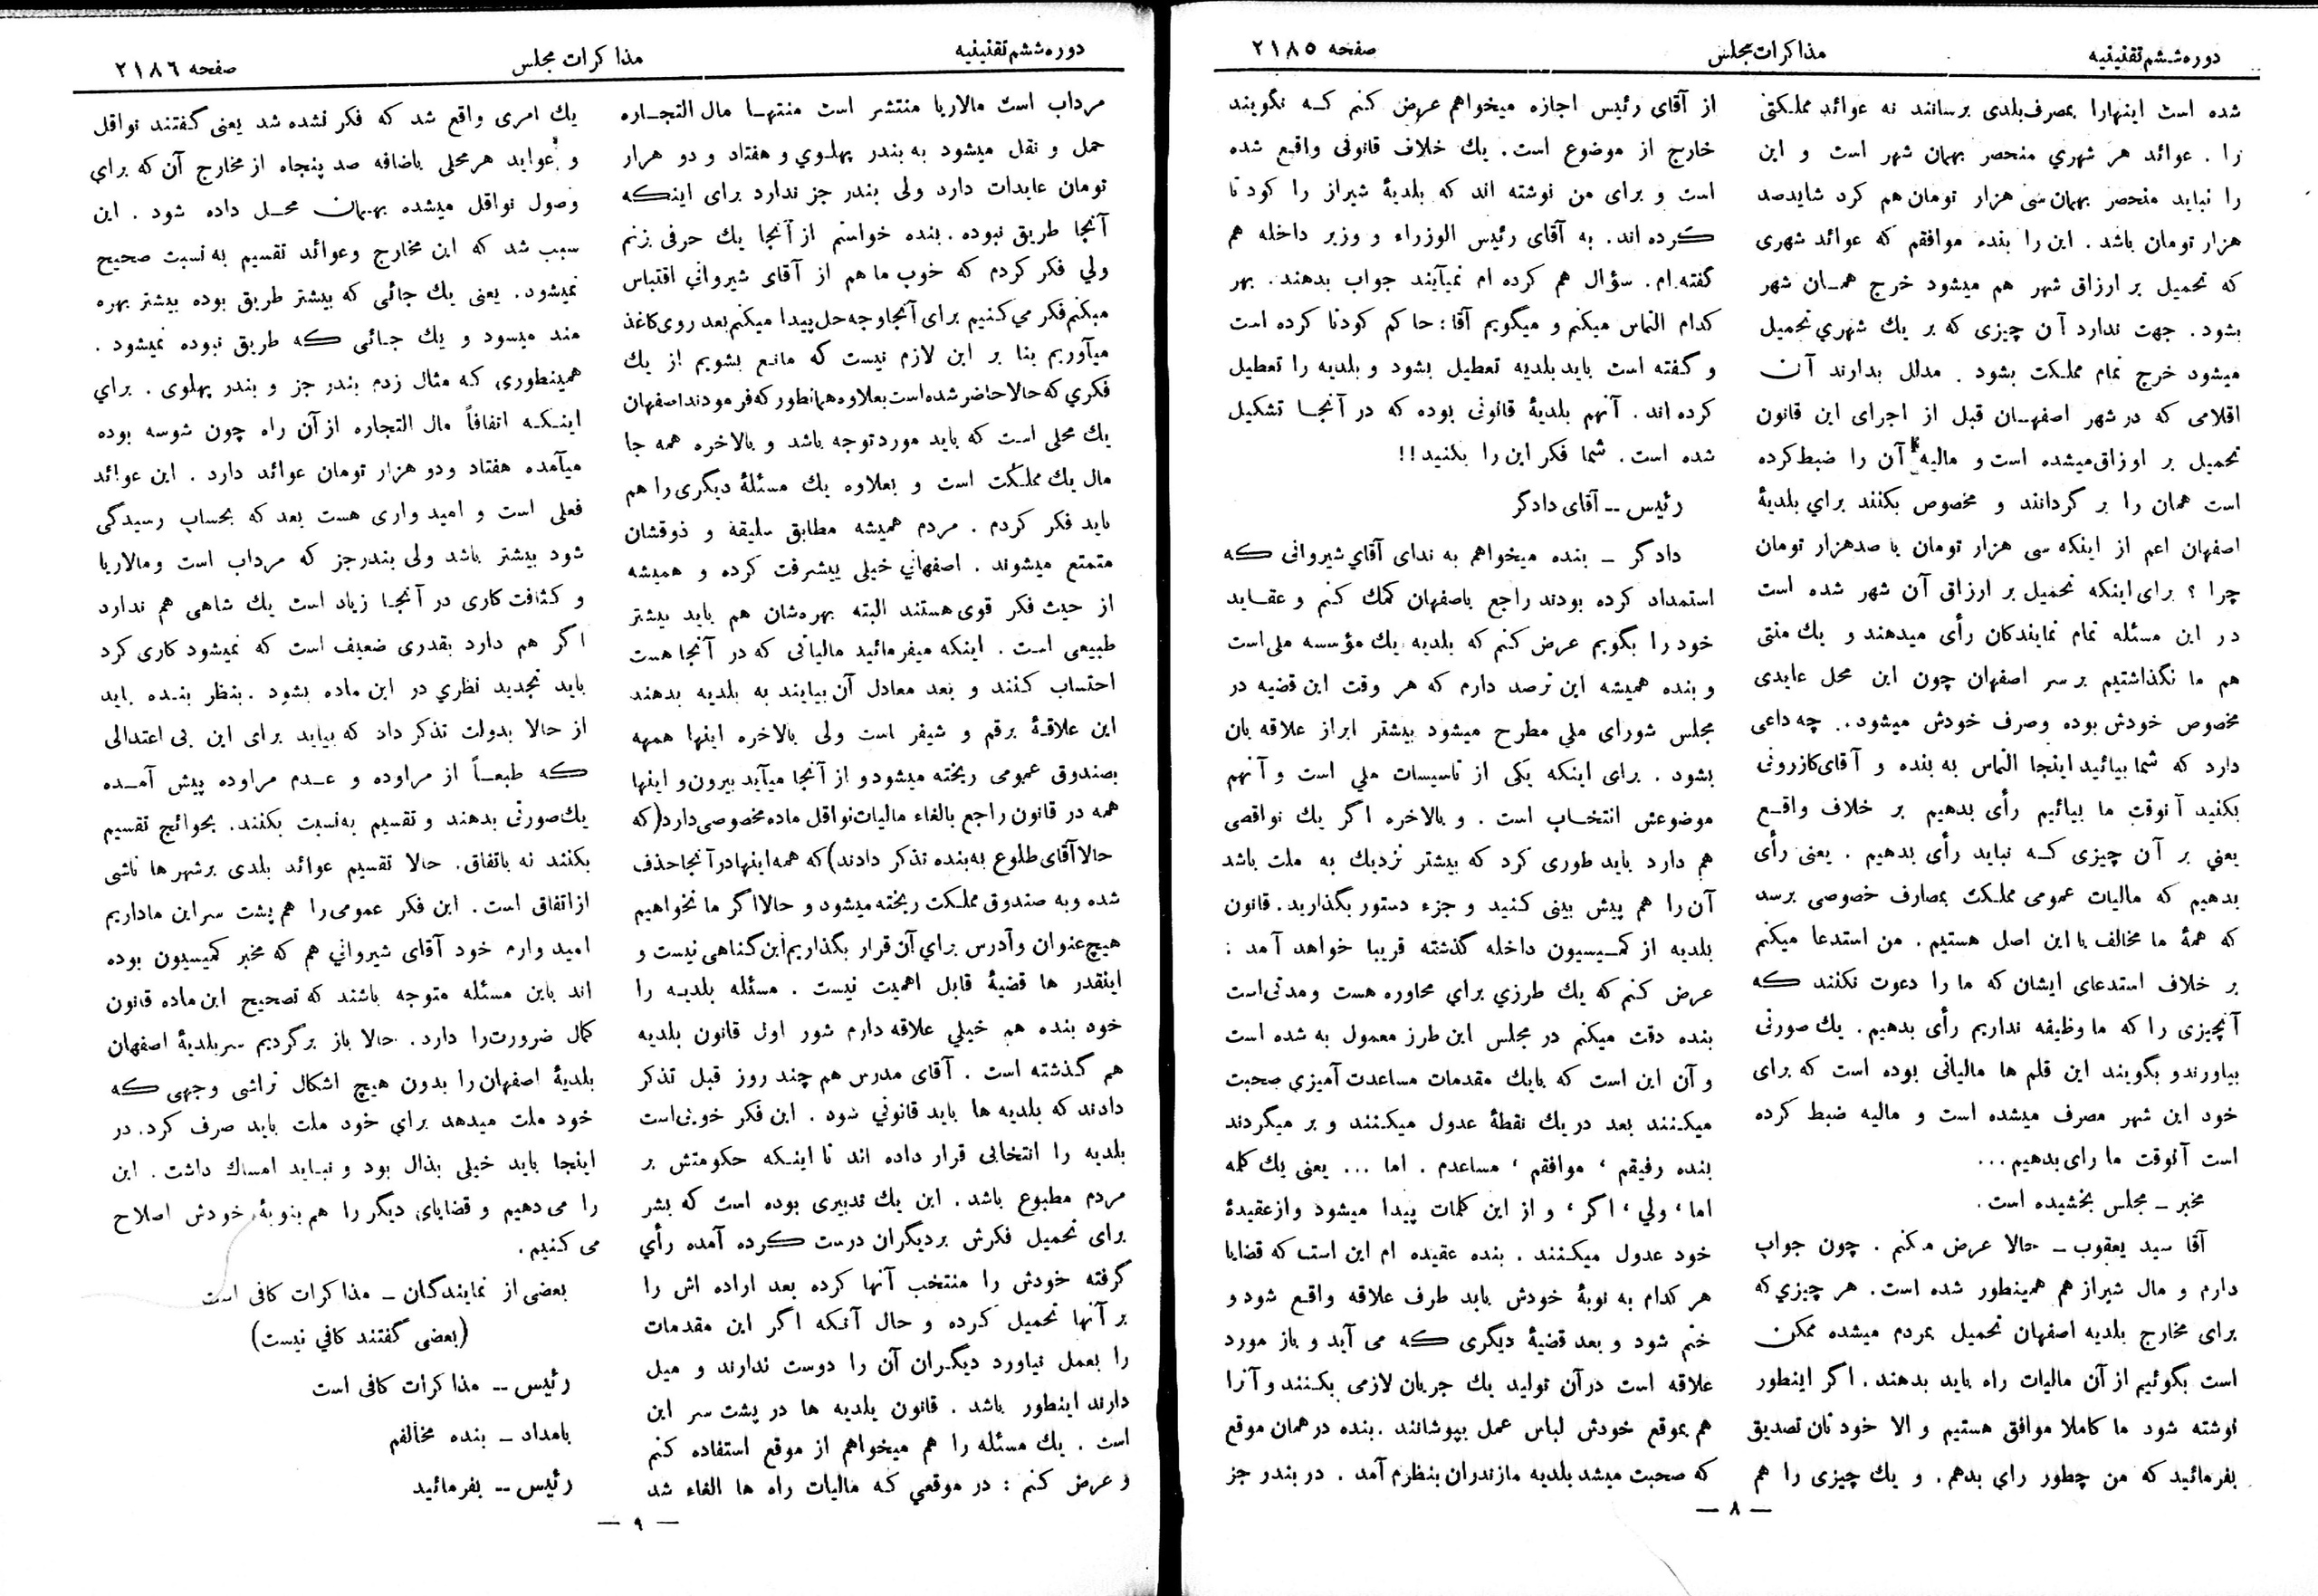 دوره ششم تقنینیه
مذاکرات مجلس
صفحه ۲۱۸۵
شده است اینهارا بمصرف بلدی برسانند نه عوائد مملکتی
را . عوائد هر شهري منحصر بهمان شهر است و این
را نباید منحصر بهمان سی هزار تومان هم کرد شاید صد
هزار تومان باشد . این را بنده موافقم که عوائد شهری
که تحمیل بر ارزاق شهر هم میشود خرج همــان شهر
بشود . جهت ندارد آن چیزی که بر یك شهري تحمیل
میشود خرج تمام مملکت بشود . مدلل بدارند آن
اقلامی که در شهر اصفهــان قبل از اجرای این قانون
تحمیل بر اوزاق میشده است و مالیه آن را ضبط کرده
است همان را بر گردانند و مخصوص بکنند براي بلدیهٔ
اصفهان اعم از اینکه سی هزار تومان یا صدهزار تومان
چرا ؟ برای اینکه تحمیل بر ارزاق آن شهر شده است
در این مسئله تمام نمایندکان رأی میدهند و یك منتی
هم ما نگذاشتیم بر سر اصفهان چون این محل عایدی
مخصوص خودش بوده وصرف خودش میشود . چه داعی
دارد که شما بیائید اینجا التماس به بنده و آقای کازرونی
بکنید آنوقت ما بیائیم رأی بدهیم بر خلاف واقــع
یعني بر آن چیزی کــه نباید رأی بدهیم . یعنی رأی
بدهیم که مالیات عمومی مملکت بمصارف خصوصی برسد
که همهٔ ما مخالف با این اصل هستیم . من استدعا میکنم
بر خلاف استدعای ایشان که ما را دعوت نکنند که
آنچیزی را که ما وظیفه نداریم رأی بدهیم . یك صورتی
بیاورند و بگویند این قلم ها مالیاتی بوده است که برای
خود این شهر مصرف میشده است و مالیه ضبط کرده
است آنوقت ما رای بدهیم ...
مخبر ـ مجلس بخشیده است .
آقا سید یعقوب ـ حالا عرض مکنم . چون جواب
دارم و مال شیراز هم همینطور شده است . هر چیزي که
برای مخارج بلدیه اصفهان تحمیل بمردم میشده ممکن
است بگوئیم از آن مالیات راه باید بدهند . اگر اینطور
نوشته شود ما کاملا موافق هستیم و الا خودتان تصدیق
بفرمائید که من چطور راي بدهم . و یك چیزی را هم
از آقای رئیس اجازه میخواهم عرض کنم کــه نگویند
خارج از موضوع است . یك خلاف قانونی واقــع شده
است و برای من نوشته اند که بلدیهٔ شیراز را کودتا
کرده اند . به آقای رئیس الوزراء و وزیر داخله هم
گفته ام . سؤال هم کرده ام نمیآیند جواب بدهند . بهر
کدام التماس میکنم و میگویم آقا : حاکم کودتا کرده است
و گفته است باید بلدیه تعطیل بشود و بلدیه را تعطیل
کرده اند . آنهم بلدیهٔ قانونی بوده که در آنجــا تشکیل
شده است . شما فکر این را بکنید !!
رئیس ــ آقای دادگر
دادگر ــ بنده میخواهم به ندای آقاي شیروانی که
استمداد کرده بودند راجع باصفهان کمك کنم و عقــاید
خود را بگویم عرض کنم که بلدیه یك مؤسسه ملی است
و بنده همیشه این ترصد دارم که هر وقت این قضیه در
مجلس شورای ملي مطرح میشود بیشتر ابراز علاقه بان
بشود . برای اینکه یکی از تاسیسات ملي است و آنهم
موضوعش انتخــاب است . و بالاخره اگر یك نواقصی
هم دارد باید طوری کرد که بیشتر نزدیك به ملت باشد
آن را هم پیش بینی کنید و جزء دستور بگذارید . قانون
بلدیه از کمــیسیون داخله گذشته قریبا خواهد آمد :
عرض کنم که یك طرزي براي محاوره هست و مدتی است
بنده دقت میکنم در مجلس این طرز معمول به شده است
و آن این است که بایك مقدمات مساعدت آمیزي صحبت
میکــنند بعد در یك نقطهٔ عدول میکــنند و بر میگردند
بنده رفیقم ، موافقم ، مساعدم . اما ... یعنی یك کلمه
اما ، ولي ، اگر ، و از این کلمات پیدا میشود و از عقیدهٔ
خود عدول میکــنند . بنده عقیده ام این است که قضایا
هر کدام به نوبهٔ خودش باید طرف علاقه واقــع شود و
ختم شود و بعد قضیهٔ دیگری که می آید و باز مورد
علاقه است در آن تولید یك جریان لازمی بکــنند و آنرا
هم بموقع خودش لباس عمل بپوشانند . بنده در همان موقع
که صحبت میشد بلدیه مازندران بنظرم آمد . در بندر جز
— ۸ —
دوره ششم تقنینیه
مذاکرات مجلس
صفحه ۲۱۸۶
مرداب است مالاریا منتشر است منتهــا مال التجــاره
حمل و نقل میشود به بندر پهلوي و هفتاد و دو هزار
تومان عایدات دارد ولی بندر جز ندارد برای اینکه
آنجا طریق نبوده . بنده خواستم از آنجا یك حرفی بزنم
ولي فکر کردم که خوب ما هم از آقای شیرواني اقتباس
میکنم فکر می کنیم برای آنجا وجه حل پیدا میکنم بعد روی کاغذ
میآوریم بنا بر این لازم نیست که مانع بشویم از یك
فکري که حالا حاضر شده است بعلاوه همانطور که فرمودند اصفهان
یك محلی است که باید مورد توجه باشد و بالاخره همه جا
مال یك مملکت است و بعلاوه یك مسئلهٔ دیگری را هم
باید فکر کردم . مردم همیشه مطابق سلیقه و ذوقشان
متمتع میشوند . اصفهاني خیلی پیشرفت کرده و همیشه
از حیث فکر قوی هستند البته بهره شان هم باید بیشتر
طبیعی است . اینکه میفرمائید مالیاتی که در آنجا هست
احتساب کنند و بعد معادل آن بیایند به بلدیه بدهند
این علاقهٔ برقم و شیفر است ولی بالاخره اینها همه
بصندوق عمومی ریخته میشود و از آنجا میآید بیرون و اینها
همه در قانون راجع بالغاء مالیات نواقل ماده مخصوصی دارد (که
حالا آقای طلوع به بنده تذکر دادند) که همه اینها در آنجا حذف
شده و به صندوق مملکت ریخته میشود و حالا اگر ما نخواهیم
هیچ عنوان و آدرس براي آن قرار بگذاریم این گناهی نیست و
اینقدر ها قضیهٔ قابل اهمیت نیست . مسئله بلدیــه را
خود بنده هم خیلي علاقه دارم شور اول قانون بلدیه
هم گذشته است . آقای مدرس هم چند روز قبل تذکر
دادند که بلدیه ها باید قانوني شود . این فکر خوبی است
بلدیه را انتخابی قرار داده اند تا اینکه حکومتش بر
مردم مطبوع باشد . این یك تدبیری بوده است که بشر
برای تحمیل فکرش بردیگران درست کرده آمده رأي
گرفته خودش را منتخب آنها کرده بعد اراده اش را
بر آنها تحمیل کرده و حال آنکه اگر این مقدمات
را بعمل نیاورد دیگــران آن را دوست ندارند و میل
دارند اینطور باشد . قانون بلدیه ها در پشت سر این
است . یك مسئله را هم میخواهم از موقع استفاده کنم
و عرض کنم : در موقعي که مالیات راه ها الغاء شد
یك امری واقع شد که فکر نشده شد یعنی گفتند نواقل
و عواید هر محلی باضافه صد پنجاه از مخارج آن که براي
وصول نواقل میشده بهمان محــل داده شود . این
سبب شد که این مخارج وعوائد تقسیم به نسبت صحیح
نمیشود . یعنی یك جائی که بیشتر طریق بوده بیشتر بهره
مند میسود و یك جــائی که طریق نبوده نمیشود .
همینطوری که مثال زدم بندر جز و بندر پهلوی . براي
اینــکــه اتفاقاً مال التجاره از آن راه چون شوسه بوده
میآمده هفتاد ودو هزار تومان عوائد دارد . این عوائد
فعلی است و امید واری هست بعد که بحساب رسیدگی
شود بیشتر باشد ولی بندرجز که مرداب است و مالاریا
و کثافت کاری در آنجــا زیاد است یك شاهی هم ندارد
اگر هم دارد بقدری ضعیف است که نمیشود کاری کرد
باید تجدید نظري در این ماده بشود . بنظر بنــده باید
از حالا بدولت تذکر داد که بیاید برای این بی اعتدالی
که طبعــاً از مراوده و عــدم مراوده پیش آمــده
یك صورتی بدهند و تقسیم به نسبت بکنند . بحوائج تقسیم
بکنند نه باتفاق . حالا تقسیم عوائد بلدی بر شهر ها ناشی
از اتفاق است . این فکر عمومی را هم پشت سر این ما داریم
امید وارم خود آقای شیرواني هم که مخبر کمیسیون بوده
اند باین مسئله متوجه باشند که تصحیح این ماده قانون
کمال ضرورت را دارد . حالا باز برگردیم سر بلدیهٔ اصفهان
بلدیهٔ اصفهان را بدون هیچ اشکال تراشی وجهی که
خود ملت میدهد براي خود ملت باید صرف کرد . در
اینجا باید خیلی بذال بود و نبــاید امساك داشت . این
را می دهیم و قضایای دیگر را هم بنوبهٔ خودش اصلاح
می کنیم .
بعضی از نمایندگان ــ مذاکرات کافی است
(بعضی گفتند کافي نیست)
رئیس ــ مذاکرات کافی است
بامداد ــ بنده مخالفم
رئیس ــ بفرمائید
— ۹ —